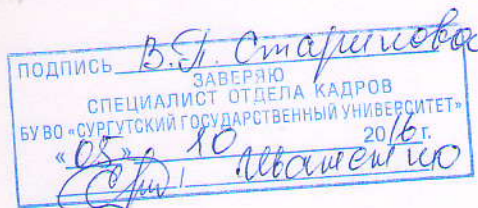 ПОДПИСЬ В.П. Старикова
ЗАВЕРЯЮ
СПЕЦИАЛИСТ ОТДЕЛА КАДРОВ
БУ ВО «СУРГУТСКИЙ ГОСУДАРСТВЕННЫЙ УНИВЕРСИТЕТ»
«05» 10 2016 г.
Иваненко